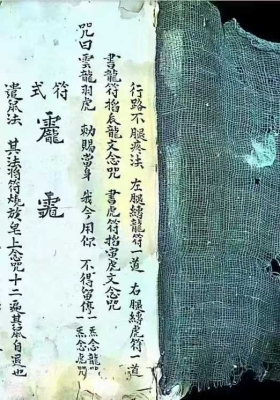 行路不腿疼法 左腿縛龍符一道 右腿縛虎符一道
書龍符掐辰龍文念咒 書虎符掐寅虎文念咒
咒曰雲龍羽虎 勅賜當身 我今用你 不得留停 一炁念龍咒 一炁念虎咒
符式 靇
遣鼠法 其法將符燒放皂上念咒十二遍其鼠自退也